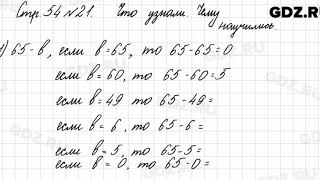 GDZ.RU
Стр. 54 № 21. Что узнали. Чему
научились.
1) 65-в, если в=65, то 65-65=0
если в=60, то 65-60=5
если в=49 то 65-49=
если в= 6, то 65-6=
если в= 5, то 65-5=
если в= 0, то 65-0=